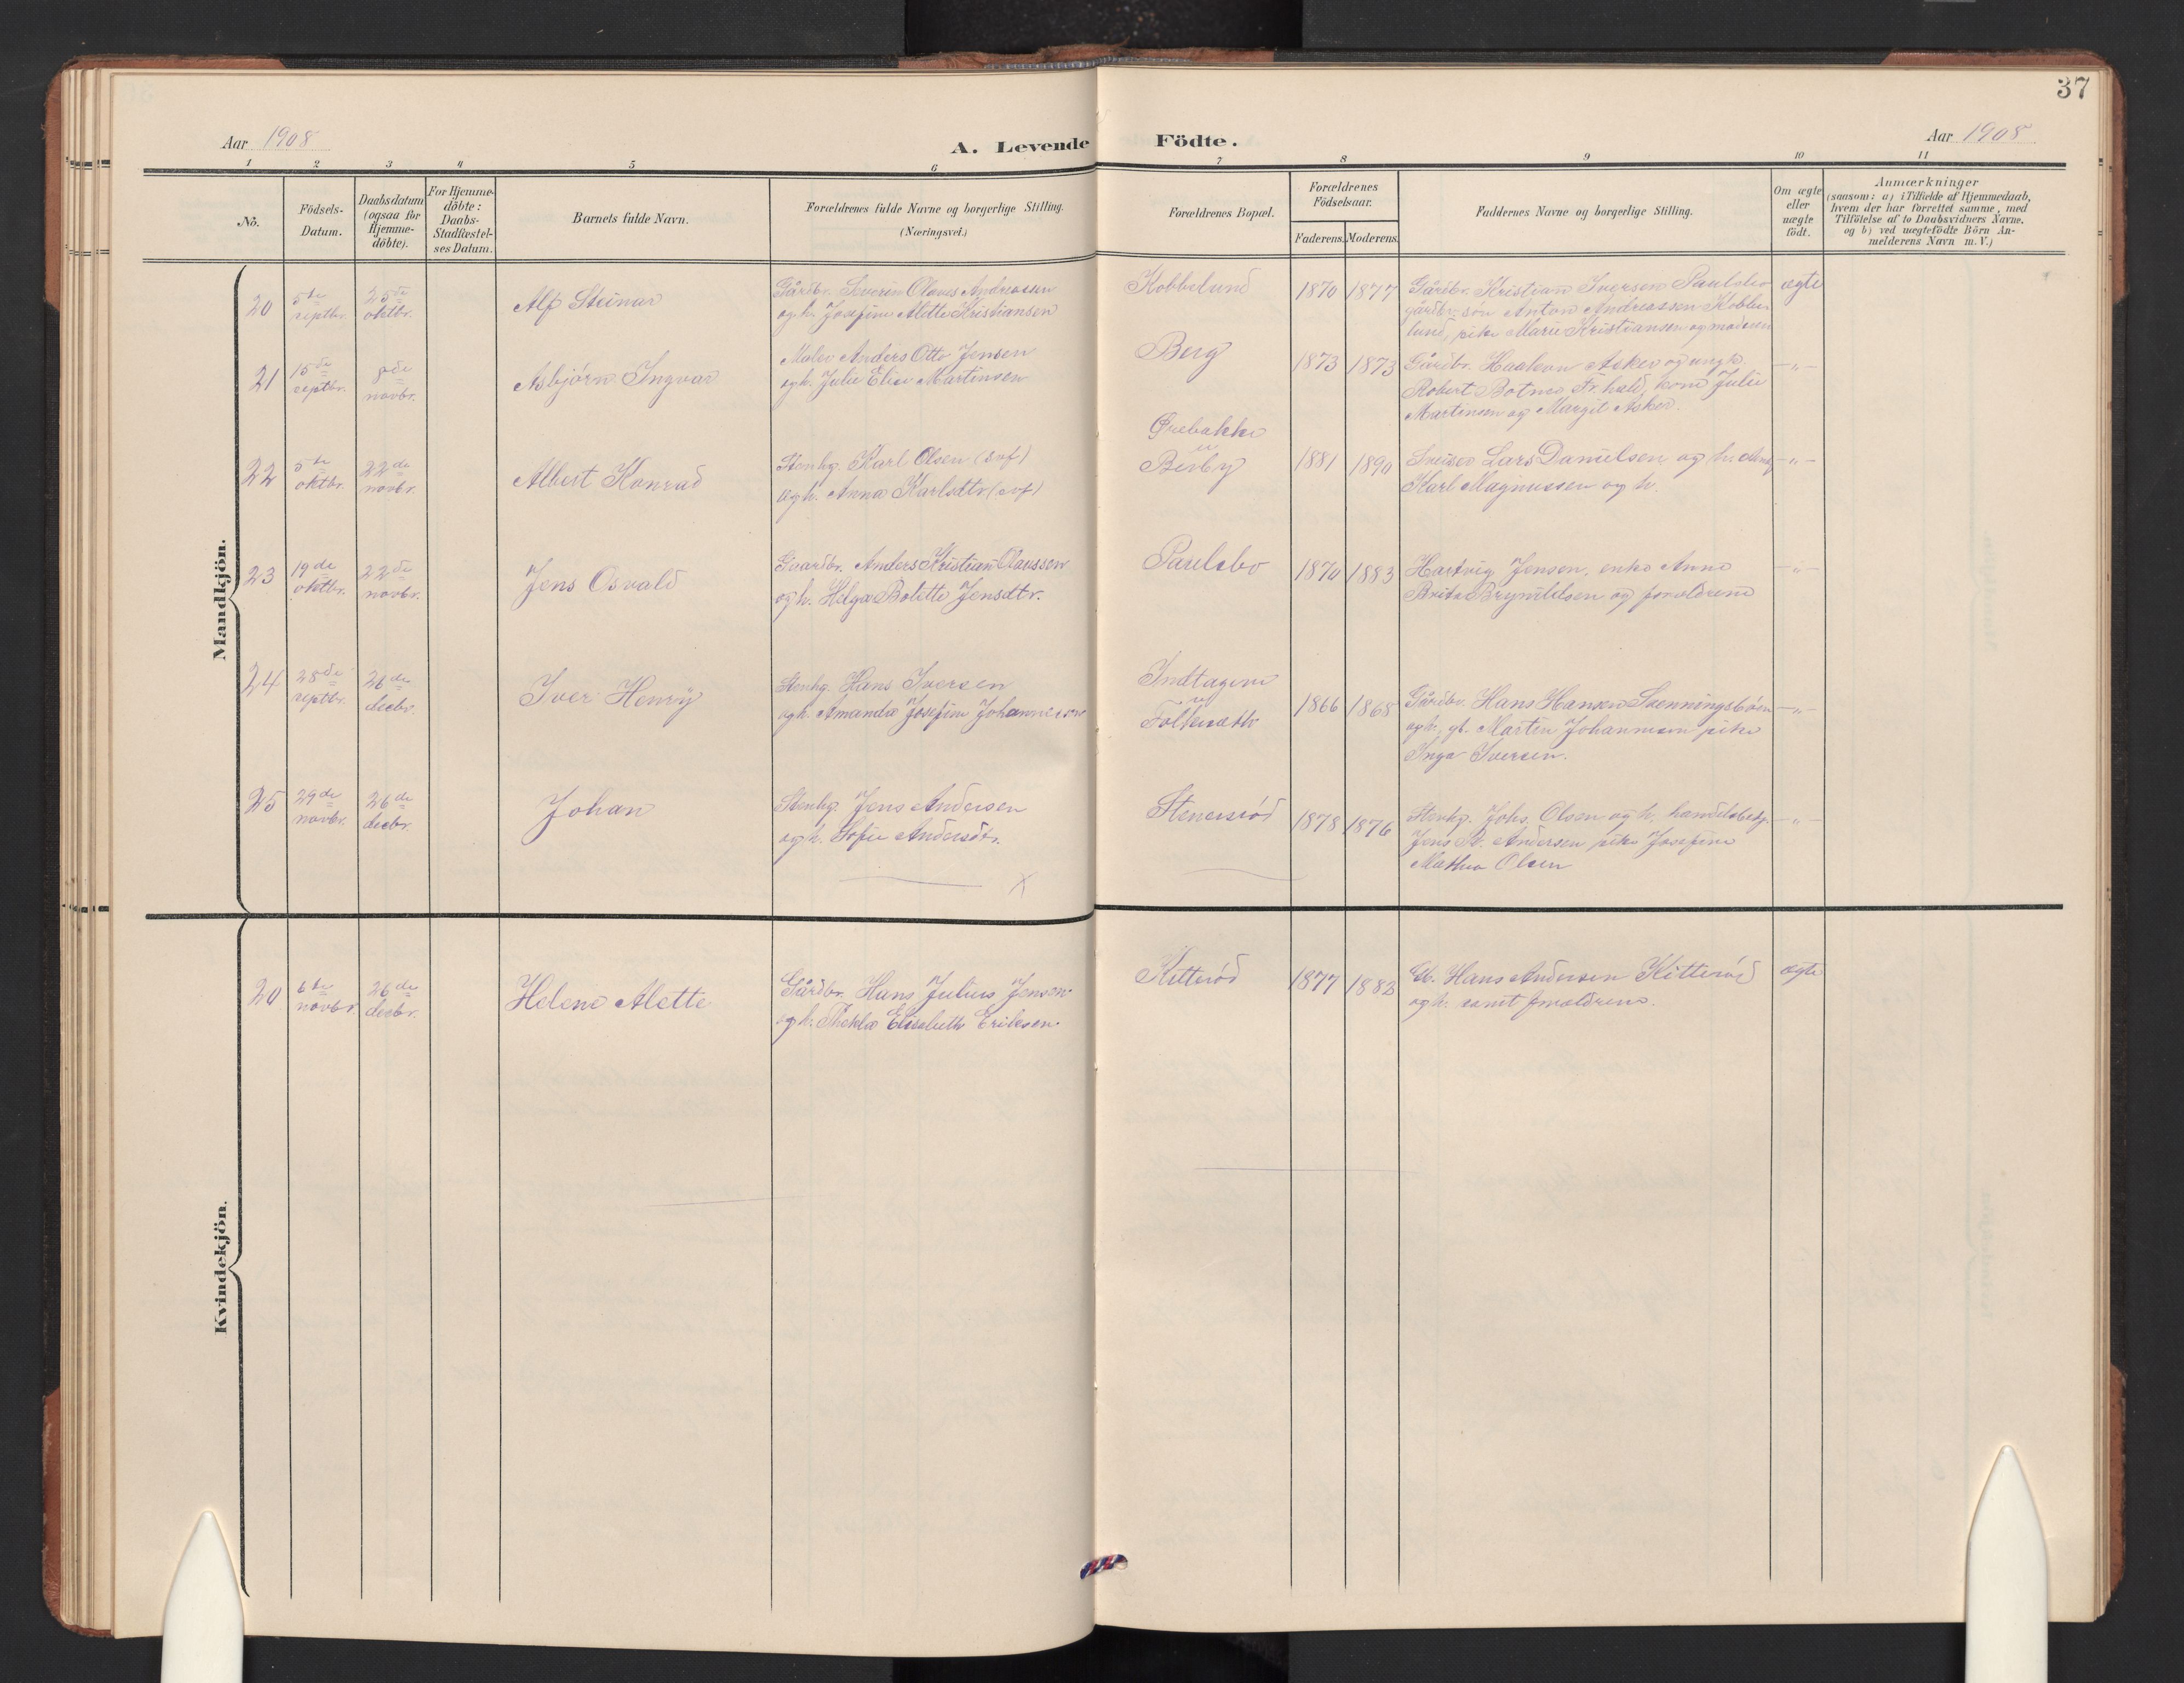 37
Aar 1908
A. Levende Födte.
Aar 1908
1 2 3 4 5 6 7 8 9 10 11
No.
Födsels-
Datum.
Daabsdatum
(ogsaa for
Hjemme-
döbte).
For Hjemme-
döbte:
Daabs-
Stadfæstel-
ses Datum.
Barnets fulde Navn.
Forældrenes fulde Navne og borgerlige Stilling.
(Næringsvei.)
Forældrenes Bopæl.
Forældrenes
Födselsaar.
Faderens. Moderens.
Faddernes Navne og borgerlige Stilling.
Om ægte
eller
uægte
födt.
Anmærkninger
(saasom: a) i Tilfælde af Hjemmedaab,
hvem der har forrettet samme, med
Tilföielse af to Daabsvidners Navne.
og b) ved uægtefödte Börn An-
melderens Navn m. V.)
Mandkjön.
20
5te
septbr.
25de
oktbr.
Alf Steinar
Gårdbr. Severin Olaves Andreassen
og h. Josefine Alette Kristiansen
Kobbelund
1870 1877
Gårdbr. Kristian Iversen Paulsbo
gårdbr. søn Anton Andreassen Kobbe-
lund, pike Marie Kristiansen og moderen
ægte
21
15de
septbr.
8de
novbr.
Asbjörn Ingvar
Maler Anders Otto Jensen
og h. Julie Elise Martinsen
Berg
1873 1873
Gårdbr. Haakon Asker og ungk.
Robert Botner Fr.hald, kone Julie
Martinsen og Margit Asker.
—"—
22
5te
oktbr.
22de
novbr.
Albert Konrad
Stenhg. Karl Olsen (svf)
og h. Anna Karlsdtr (svf)
Ørebakke
u
Berby
1881 1890
Sveiser Lars Danielsen og h.
Karl Magnussen og h.
—"—
23
19de
oktbr.
22de
novbr.
Jens Osvald
Gaardbr. Anders Kristian Olaussen
og h. Helga Bolette Jensdtr.
Paulsbo
1870 1883
Hartvig Jensen, enke Anne
Brita Bryntelsen og forældrene
—"—
24
28de
septbr.
26de
decbr.
Iver Henry
Stenhg. Hans Iversen
og h. Amanda Josefine Johannesen
Indtagene
u
Folkesæth
1866 1868
Gårdbr. Hans Hansen Svenningsböen
og h. gt. Martin Johannesen pike
Inga Iversen.
—"—
25
29de
novbr.
26de
decbr.
Johan
Stenhg. Jens Andersen
og h. Sofie Andersdtr.
Stenersröd
1878 1876
Stenhg. Johs. Olsen og h. handelsbetj.
Jens St. Andersen pike Josefine
Mathea Olsen
—"—
X
Kvindekjön.
20
6te
novbr.
26de
decbr.
Helene Alette
Gårdbr. Hans Julius Jensen
og h. Thekla Elisabeth Eriksen.
Kitteröd
1877 1883
Gb. Hans Andersen Kitteröd
og h. samt forældrene.
ægte